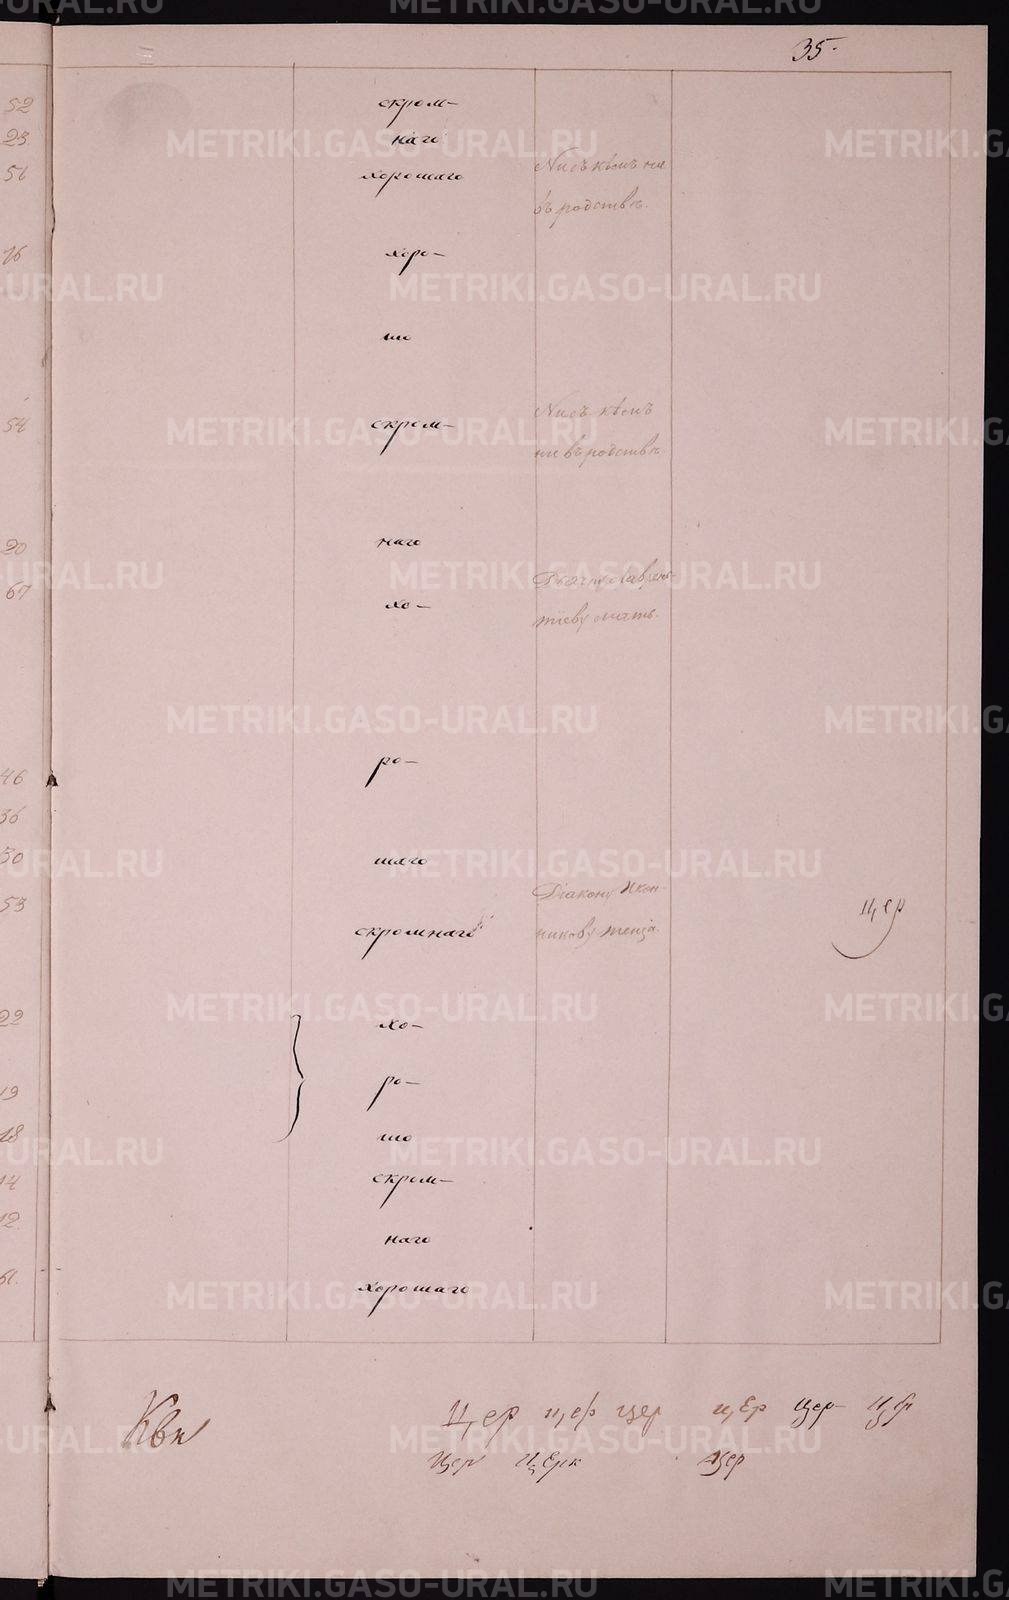 35.
52
скром-
23.
наго
56
хорошаго
Ни съ кѣмъ не
въ родствѣ.
16
хоро-
шо
54
скром-
Ни съ кѣмъ
не въ родствѣ
20
наго
67
хо-
Лаврень-
тіеву мать.
46
ро-
36
30
шаго
53
скромнаго
Діакону Икон-
никову теща.
Цер
22
хо-
19
ро-
18
шо
14
скром-
12.
наго
61.
хорошаго
Цер цер цер цер цер цер
Цер Церк Цер
METRIKI.GASO-URAL.RU